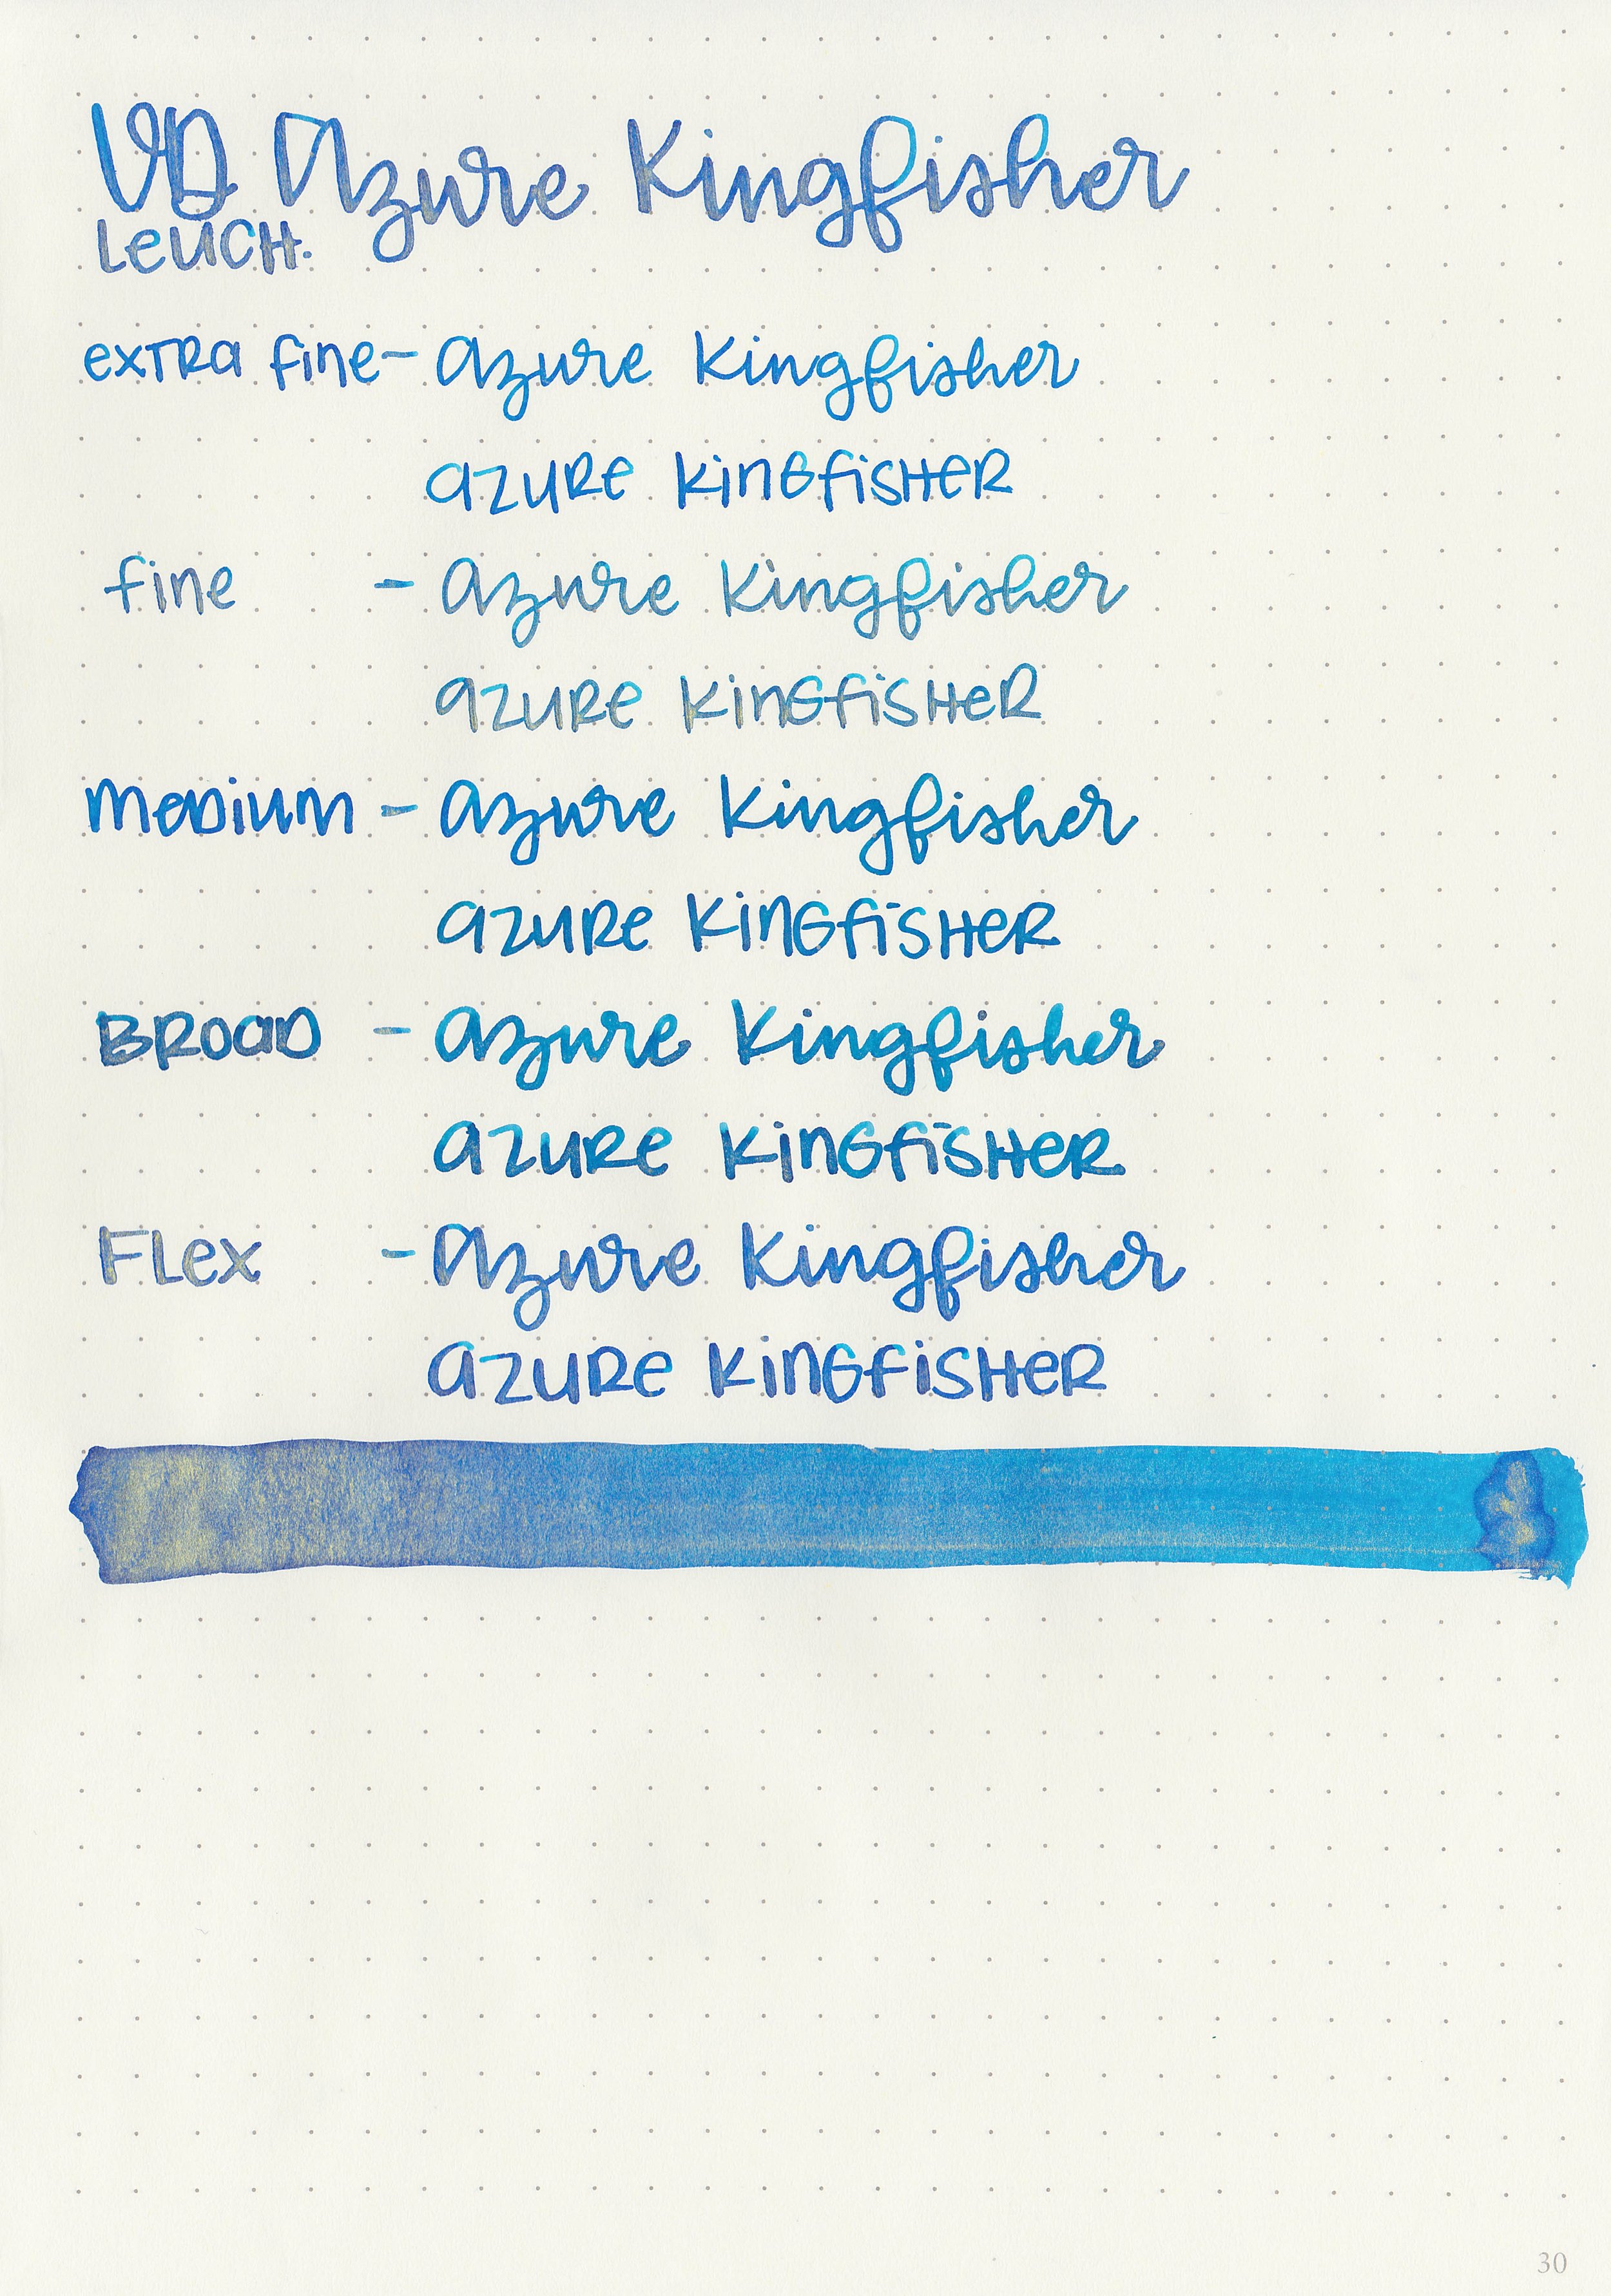 VD Azure Kingfisher
Leuch.
extra fine - Azure Kingfisher
azure kingfisher
fine - Azure Kingfisher
azure kingfisher
medium - Azure Kingfisher
azure kingfisher
Broad - Azure Kingfisher
azure kingfisher
Flex - Azure Kingfisher
azure kingfisher
30